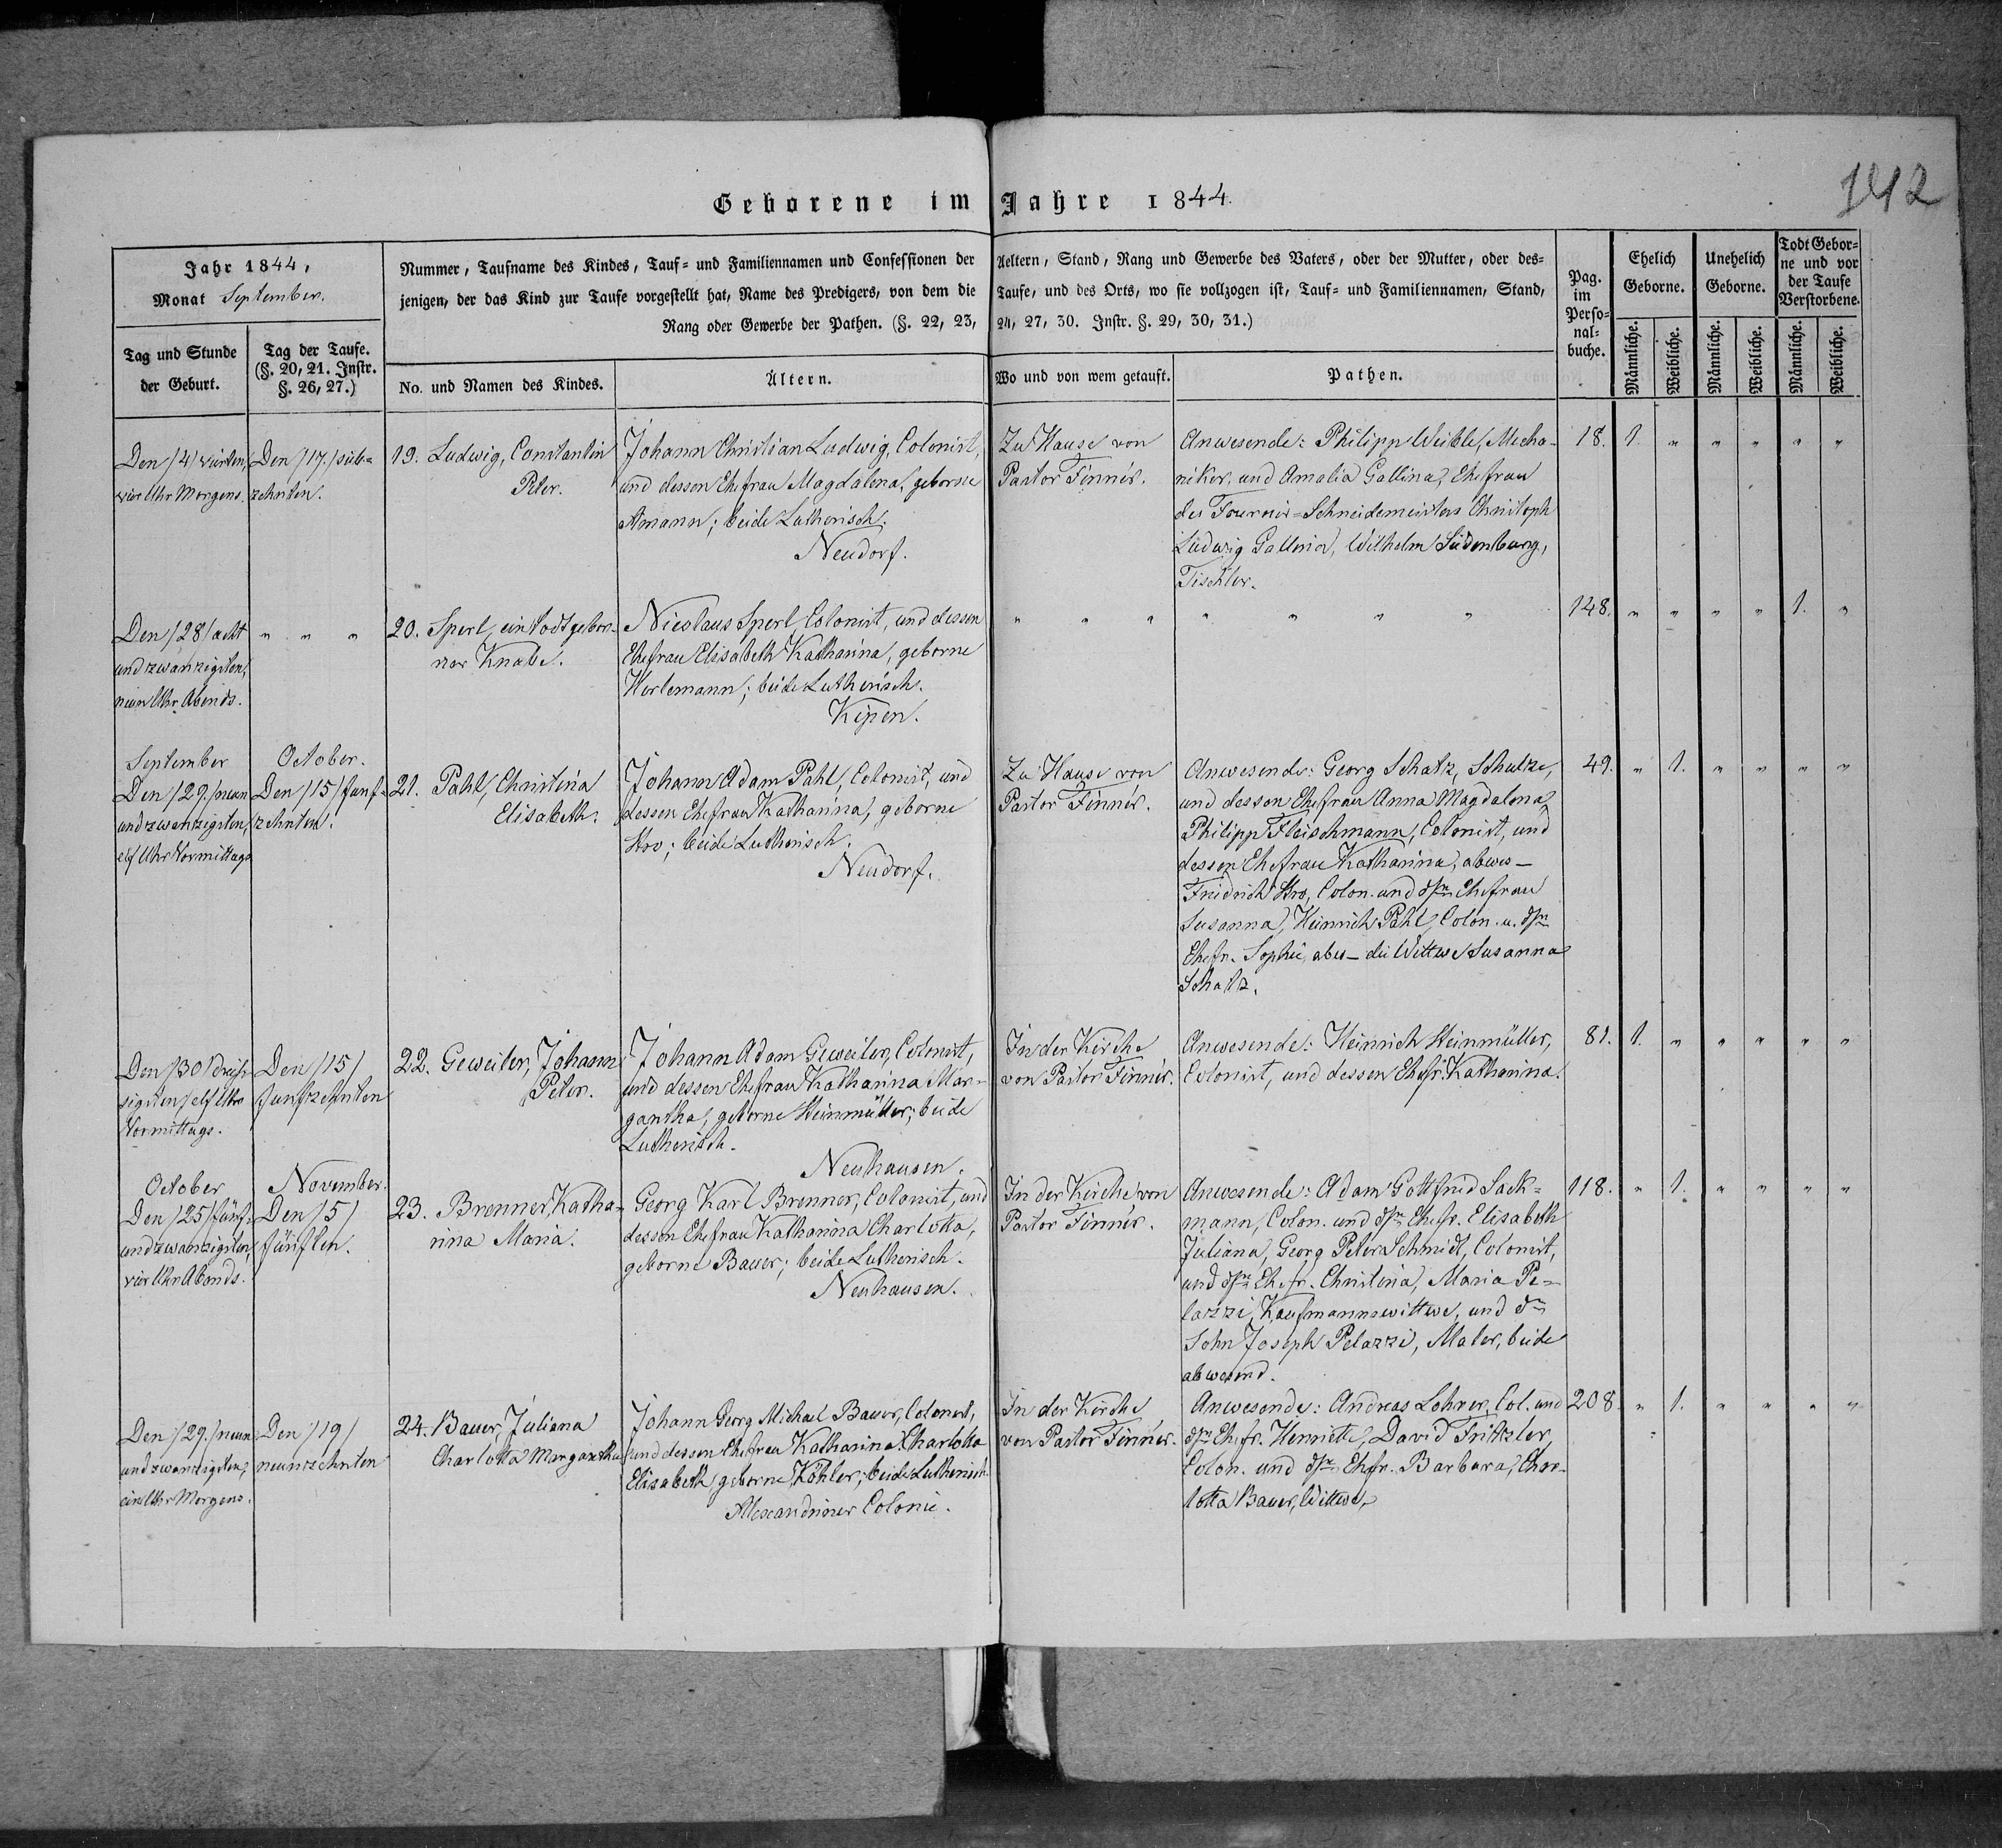 142
Geborene im Jahre 1844.
Jahr 1844,
Monat September.
Tag und Stunde
der Geburt.
Tag der Taufe.
(§. 20, 21. Instr.
§. 26, 27.)
Nummer, Taufname des Kindes, Tauf- und Familiennamen und Confessionen der Aeltern, Stand, Rang und Gewerbe des Vaters, oder der Mutter, oder des-
jenigen, der das Kind zur Taufe vorgestellt hat, Name des Predigers, von dem die Taufe, und des Orts, wo sie vollzogen ist, Tauf- und Familiennamen, Stand,
Rang oder Gewerbe der Pathen. (§. 22, 23, 24, 27, 30. Instr. §. 29, 30, 31.)
No. und Namen des Kindes.
Ältern.
Wo und von wem getauft.
Pathen.
Pag.
im
Perso-
nal-
buche.
Ehelich
Geborne.
Unehelich
Geborne.
Todt Gebor-
ne und vor
der Taufe
Verstorbene.
Männliche.
Weibliche.
Männliche.
Weibliche.
Männliche.
Weibliche.
Den /4/ vierten,
vier Uhr Morgens.
Den /17./ sieb-
zehnten.
19. Ludwig, Constantin
Peter.
Johann Christian Ludwig, Colonist,
und dessen Ehefrau Magdalena, geborne
Amann; beide Lutherisch.
Neudorf.
Zu Hause von
Pastor Finnér.
Anwesende: Philipp Weible, Mecha-
niker, und Amalia Gallina, Ehefrau
des Fournir-Schneidemeisters Christoph
Ludwig Gallina, Wilhelm Südenburg,
Tischler.
18. 1. " " " " "
Den /28/ acht
und zwanzigsten,
neun Uhr Abends.
" " "
20. Sperl, ein todtgebor-
ner Knabe.
Nicolaus Sperl, Colonist, und dessen
Ehefrau Elisabeth Katharina, geborne
Horlemann; beide Lutherisch.
Kipen.
" " " " " " "
148. " " " " 1. "
September
Den /29./ neun
und zwanzigsten,
elf Uhr Vormittags
October.
Den /15/ funf-
zehnten.
21. Pahl, Christina
Elisabeth.
Johann Adam Pahl, Colonist, und
dessen Ehefrau Katharina, geborne
Stro; beide Lutherisch.
Neudorf.
Zu Hause von
Pastor Finnér.
Anwesende: Georg Schatz, Schulze,
und dessen Ehefrau Anna Magdalena,
Philipp Fleischmann, Colonist, und
dessen Ehefrau Katharina, abwes-
Friedrich Stro, Colon. und dssn Ehefrau
Susanna, Heinrich Pahl, Colon. u. dssn
Ehefr. Sophie, abw- die Wittwe Susanna
Schatz.
49. " 1. " " " "
Den /30/ dreis-
sigsten, elf Uhr
Vormittags.
Den /15/
funfzehnten
22. Geweiler, Johann
Peter.
Johann Adam Geweiler, Colonist,
und dessen Ehefrau Katharina Mar-
garetha, geborne Heinmüller; beide
Lutherisch.
Neuhausen.
In der Kirche
von Pastor Finnér.
Anwesende: Heinrich Heinmüller,
Colonist, und dessen Ehefr. Katharina.
81. 1. " " " " "
October
Den /25/ fünf-
und zwanzigsten,
vier Uhr Abends.
November.
Den /5/
fünften.
23. Brenner, Katha-
rina Maria.
Georg Karl Brenner, Colonist, und
dessen Ehefrau Katharina Charlotta,
geborne Bauer; beide Lutherisch.
Neuhausen.
In der Kirche von
Pastor Finnér.
Anwesende: Adam Gottfried Sack-
mann, Colon. und dssn Ehefr. Elisabeth
Juliana, Georg Peter Schmidt, Colonist,
und dssn Ehefr. Christina, Maria Pe-
lazzi, Kaufmannswittwe, und
Sohn Joseph Pelazzi, Maler, beide
abwesend.
118. " 1. " " " "
Den /29./ neun
und zwanzigsten,
ein Uhr Morgens.
Den /19/
neunzehnten
24. Bauer, Juliana
Charlotta Margaretha
Johann Georg Michael Bauer, Colonist,
und dessen Ehefrau Katharina Charlotta
Elisabeth, geborne Köhler; beide Lutherisch
Alexandriner Colonie.
In der Kirche
von Pastor Finnér.
Anwesende: Andreas Lohrer, Col. und
dssn Ehefr. Henriette, David Fritzler,
Colon. und dssn Ehefr. Barbara, Char-
lotta Bauer, Wittwe,
208. " 1. " " " "